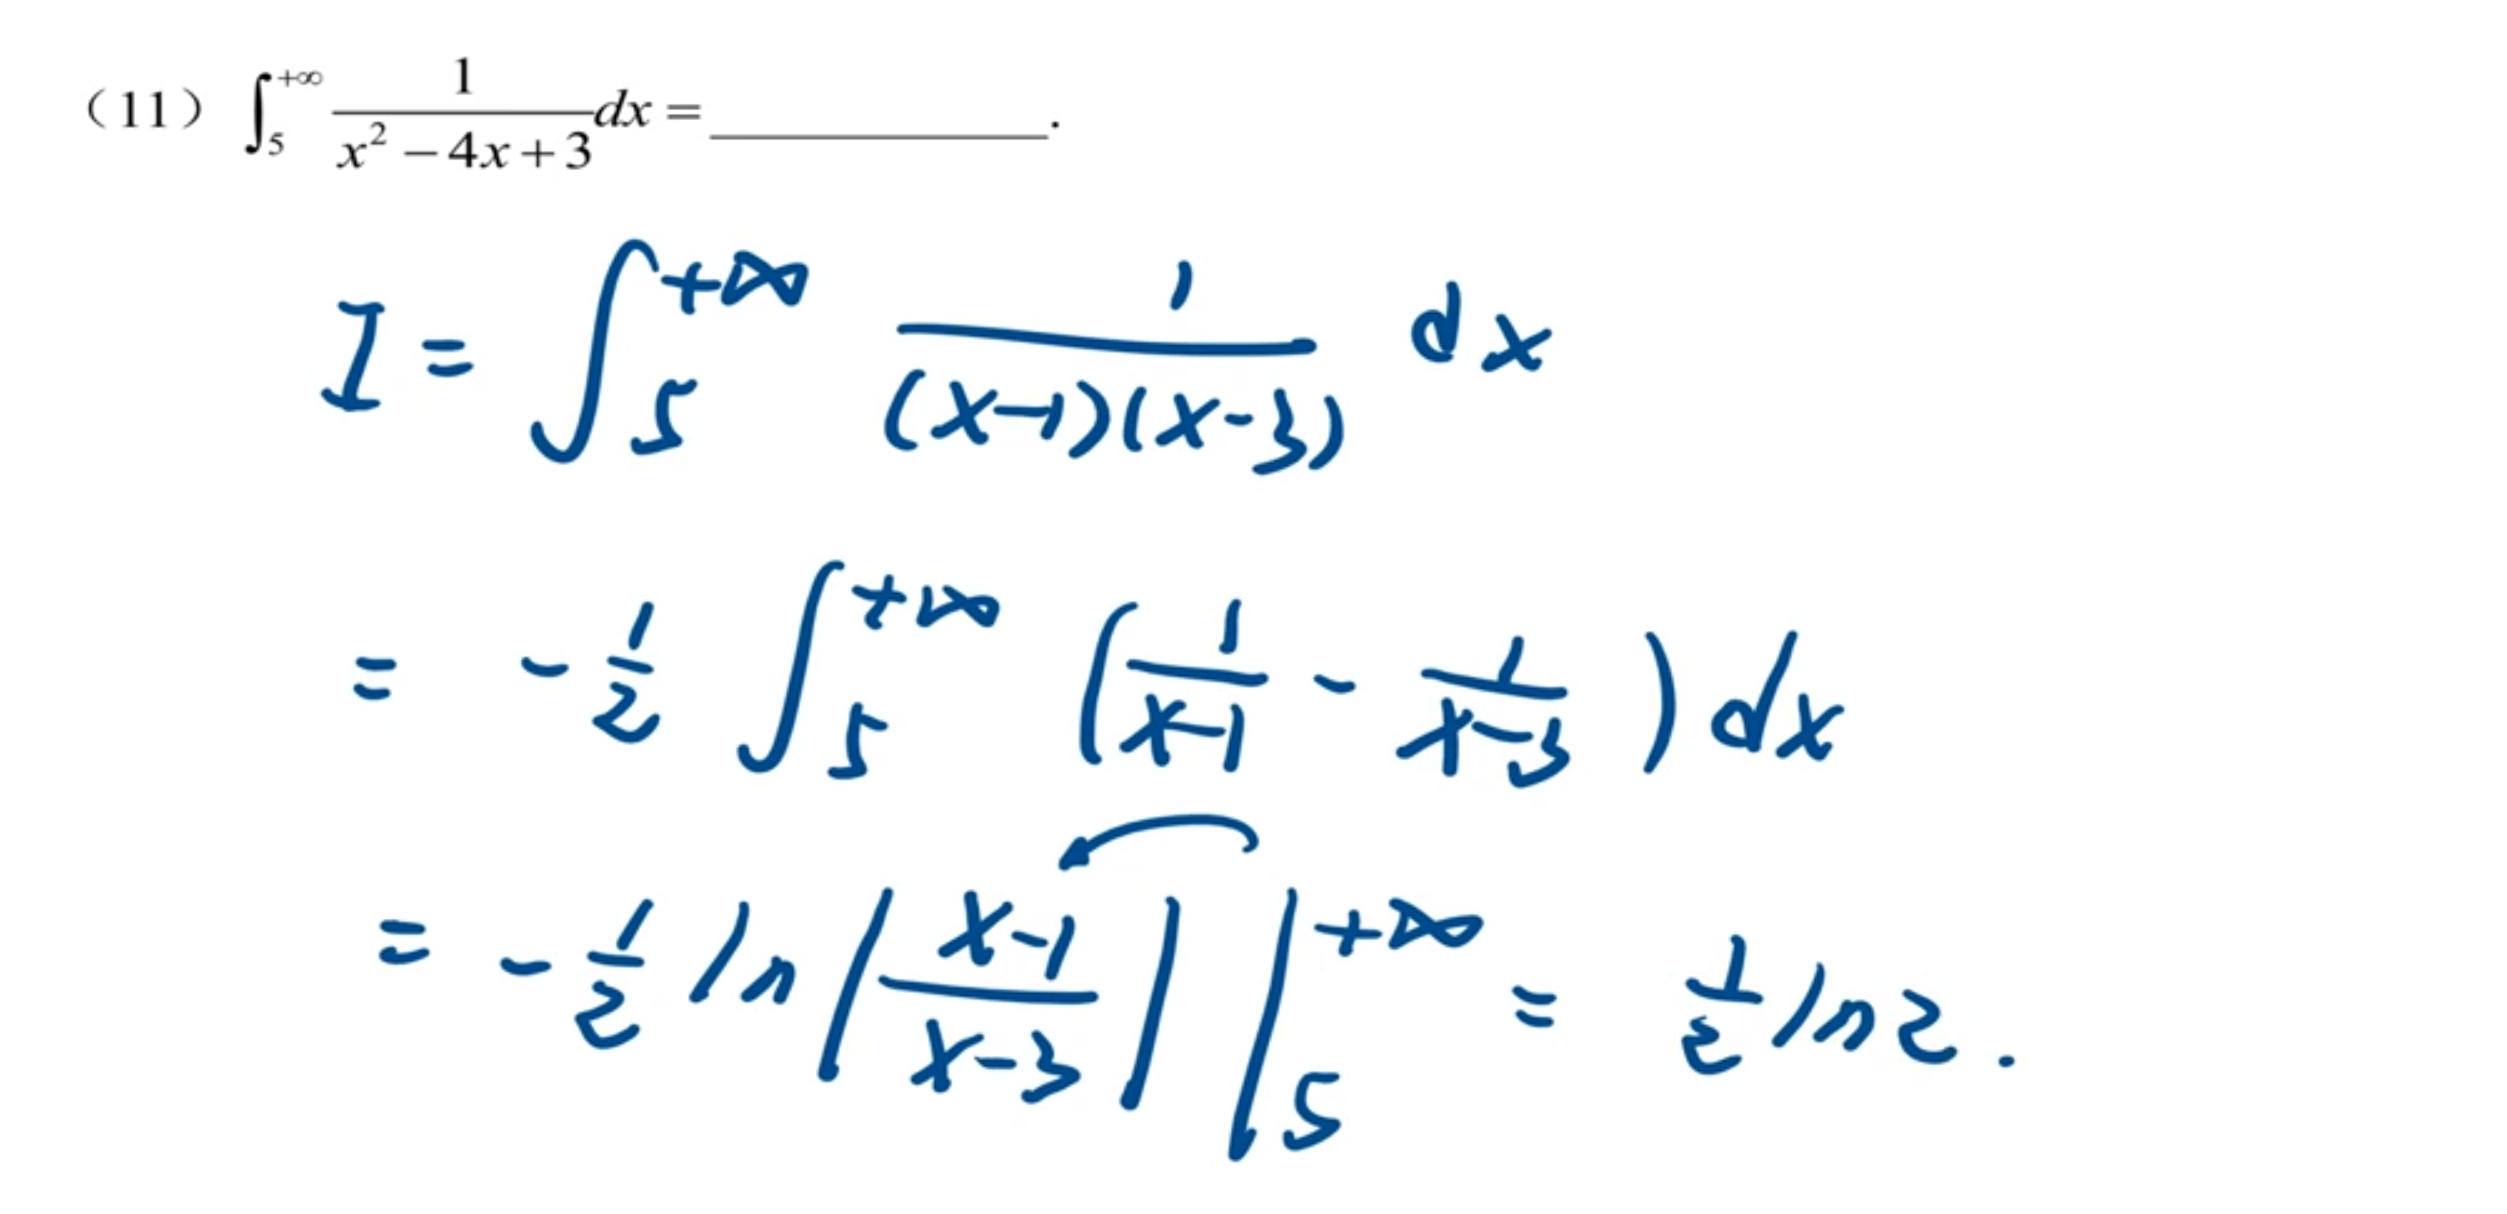 （11） ∫_5^{+∞} 1/(x² − 4x + 3) dx = ____________.
I = ∫_5^{+∞} 1/((x-1)(x-3)) dx
= -1/2 ∫_5^{+∞} (1/(x-1) - 1/(x-3)) dx
= -1/2 ln|(x-1)/(x-3)| |_5^{+∞} = 1/2 ln2.